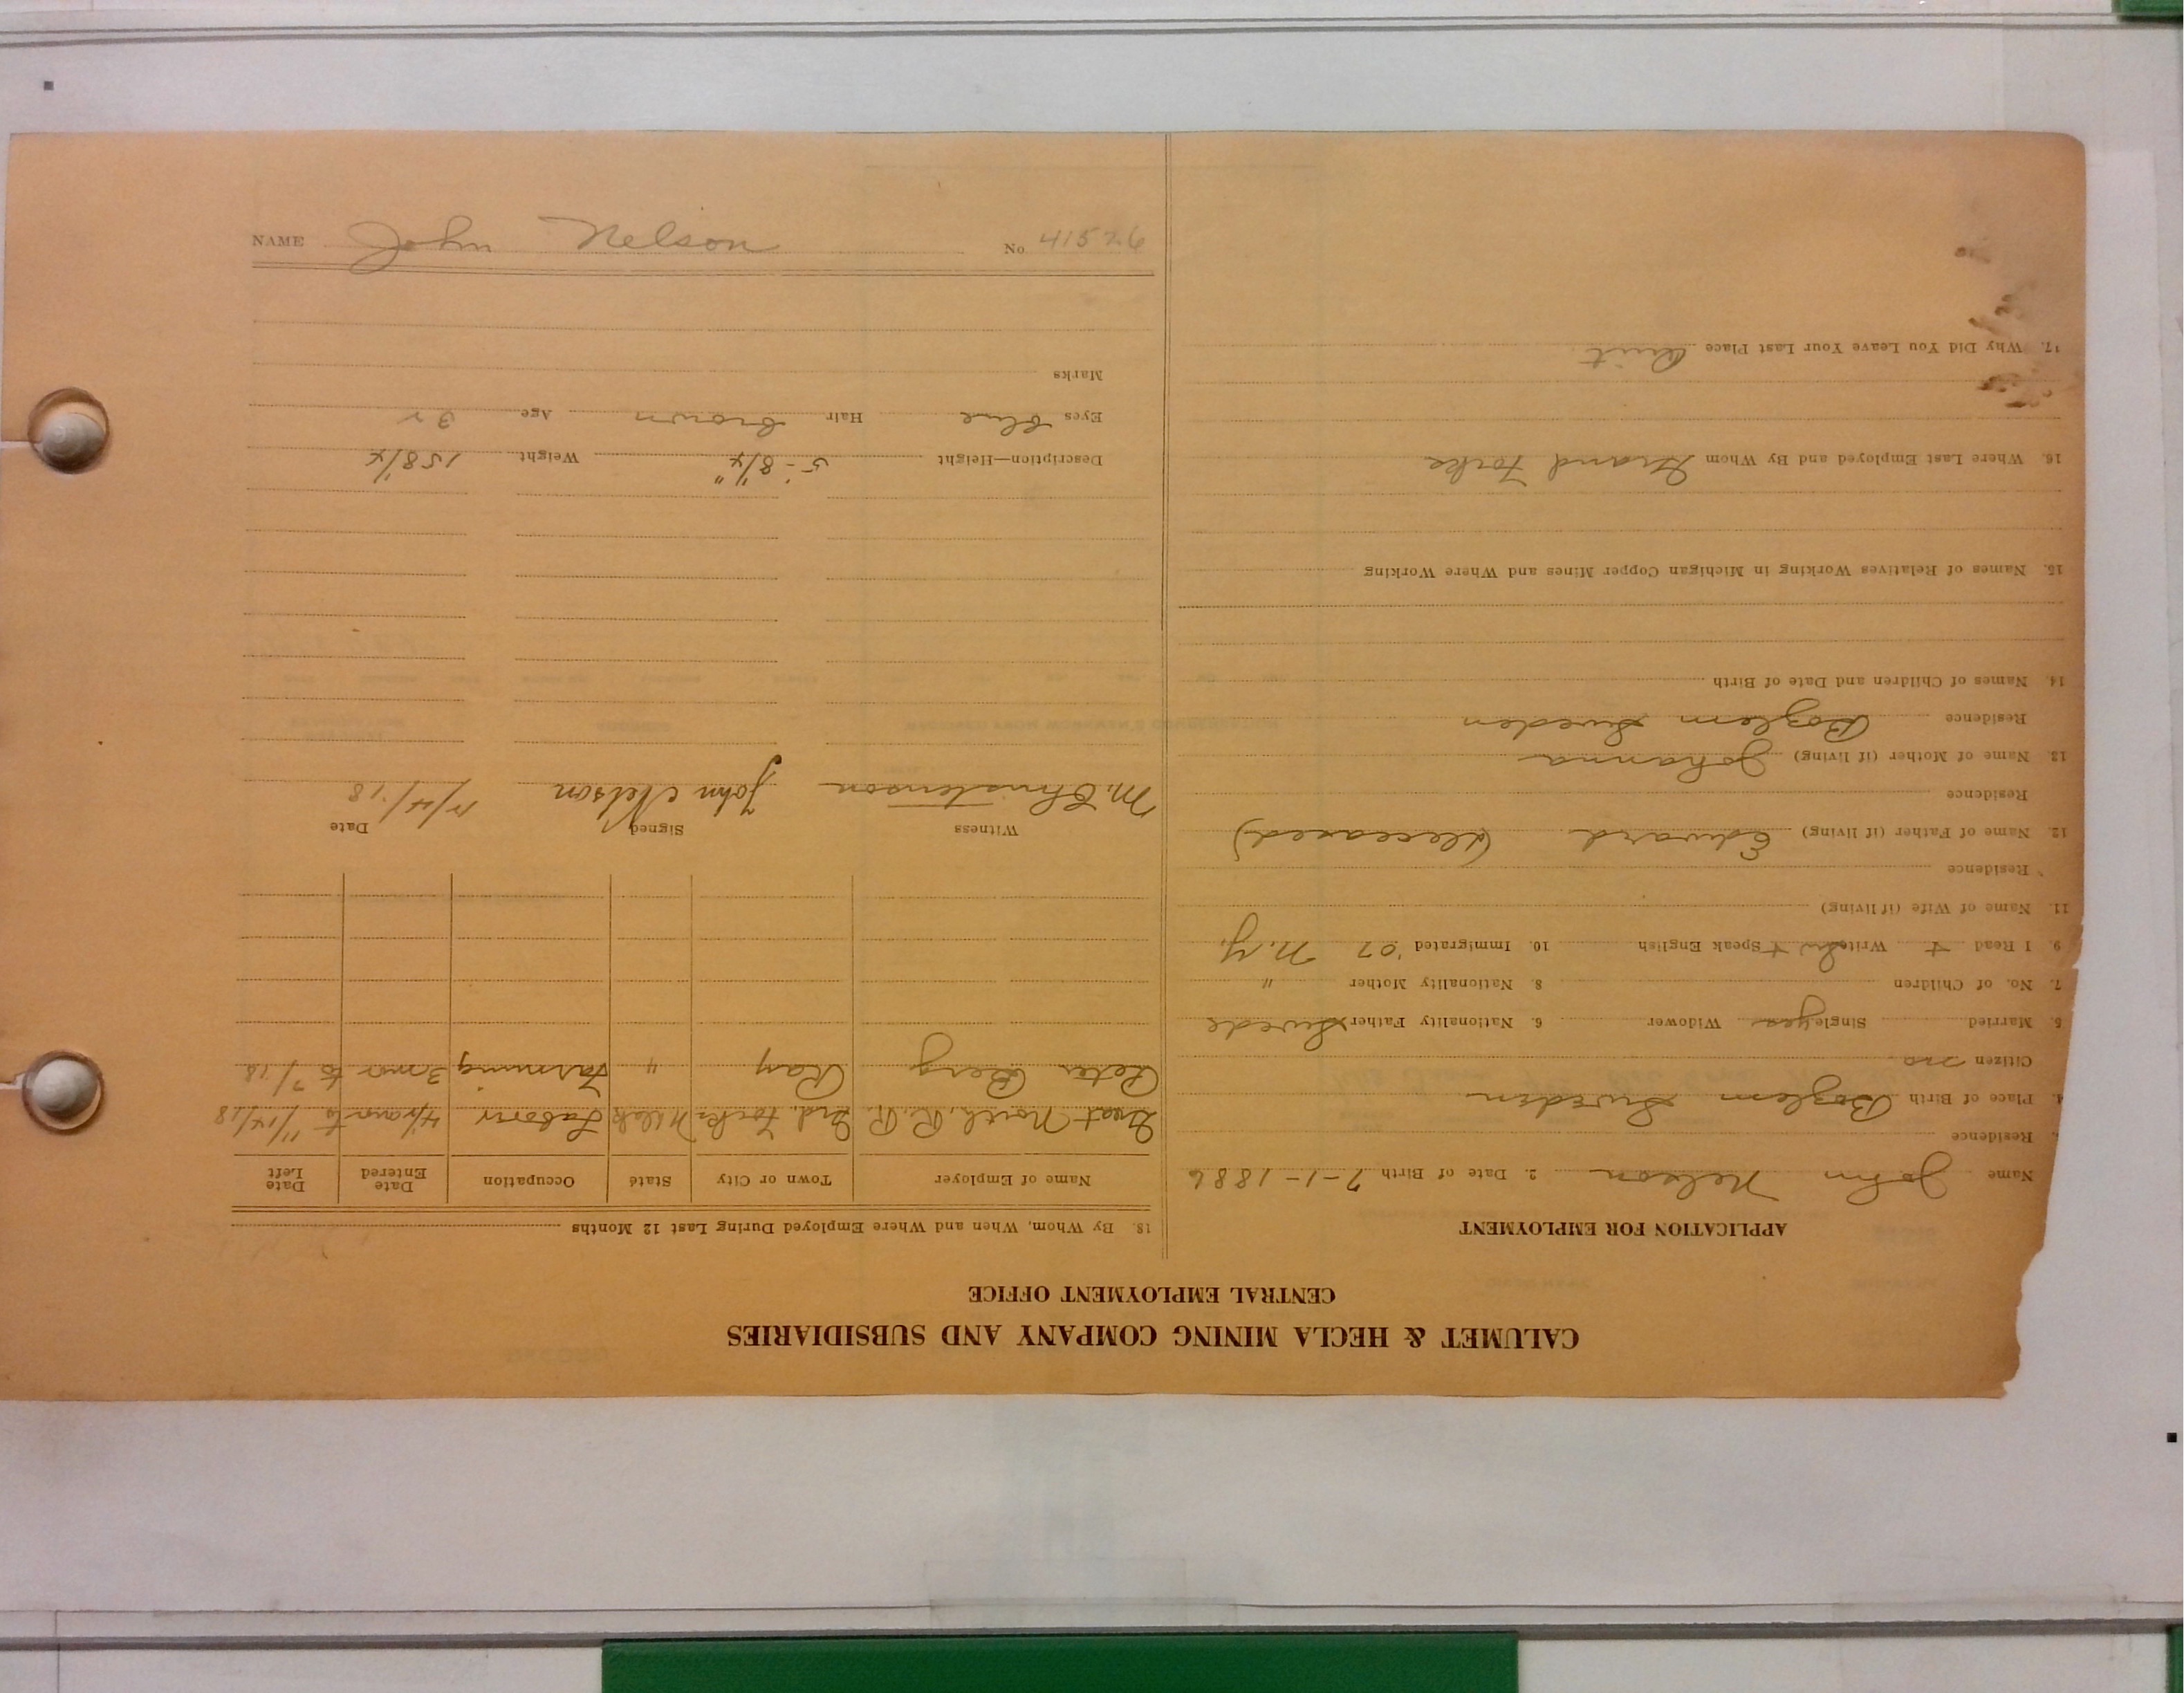 CALUMET & HECLA MINING COMPANY AND SUBSIDIARIES
CENTRAL EMPLOYMENT OFFICE
APPLICATION FOR EMPLOYMENT
Name John Nelson 2. Date of Birth 7-1-1886
Residence
4. Place of Birth Bozlem Sweden
Citizen no
5. Married Single yes Widower 6. Nationality Father Swede
7. No. of Children 8. Nationality Mother "
9. I Read + Write Sw + Speak English 10. Immigrated '07 N.Y.
11. Name of Wife (if living)
Residence
12. Name of Father (if living) Edward (deceased)
Residence
13. Name of Mother (if living) Johanna
Residence Bozlem Sweden
14. Names of Children and Date of Birth
15. Names of Relatives Working in Michigan Copper Mines and Where Working
16. Where Last Employed and By Whom Grand Forks
17. Why Did You Leave Your Last Place Quit
18. By Whom, When and Where Employed During Last 12 Months
Name of Employer Town or City State Occupation Date Entered Date Left
Great North. R.R. Grd. Forks N.Dak Labor to 11/14/18
Peter Berg Ray " Farming 3 mos to 7/18
Witness Signed Date
M. Christenson John Nelson 18
Description—Height 5'-8 1/4" Weight 158 1/4
Eyes blue Hair brown Age 32
Marks
NAME John Nelson No. 41526